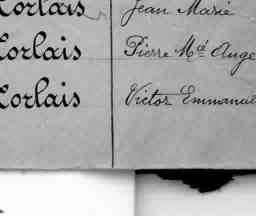 Corlais Jean Marie
Corlais Pierre Mie Ange
Corlais Victor Emmanuel